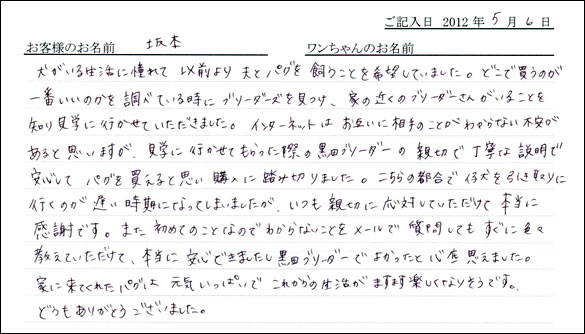 ご記入日 2012年 5月 6日
お客様のお名前 坂本 ワンちゃんのお名前
犬がいる生活に憧れて以前より夫とパグを飼うことを希望していました。どこで買うのが
一番いいのかを調べている時にブリーダーズを見つけ、家の近くのブリーダーさんがいることを
知り見学に行かせていただきました。インターネットはお互いに相手のことがわからない不安が
あると思いますが、見学に行かせてもらった際の黒田ブリーダーの親切で丁寧な説明で
安心してパグを買えると思い購入に踏み切りました。こちらの都合で仔犬を引き取りに
行くのが遅い時期になってしまいましたが、いつも親切に応対していただけて本当に
感謝です。また初めてのことなのでわからないことをメールで質問してもすぐに色々
教えていただけて、本当に安心できましたし黒田ブリーダーでよかったと心底思えました。
家に来てくれたパグは元気いっぱいでこれからの生活がますます楽しくなりそうです。
どうもありがとうございました。